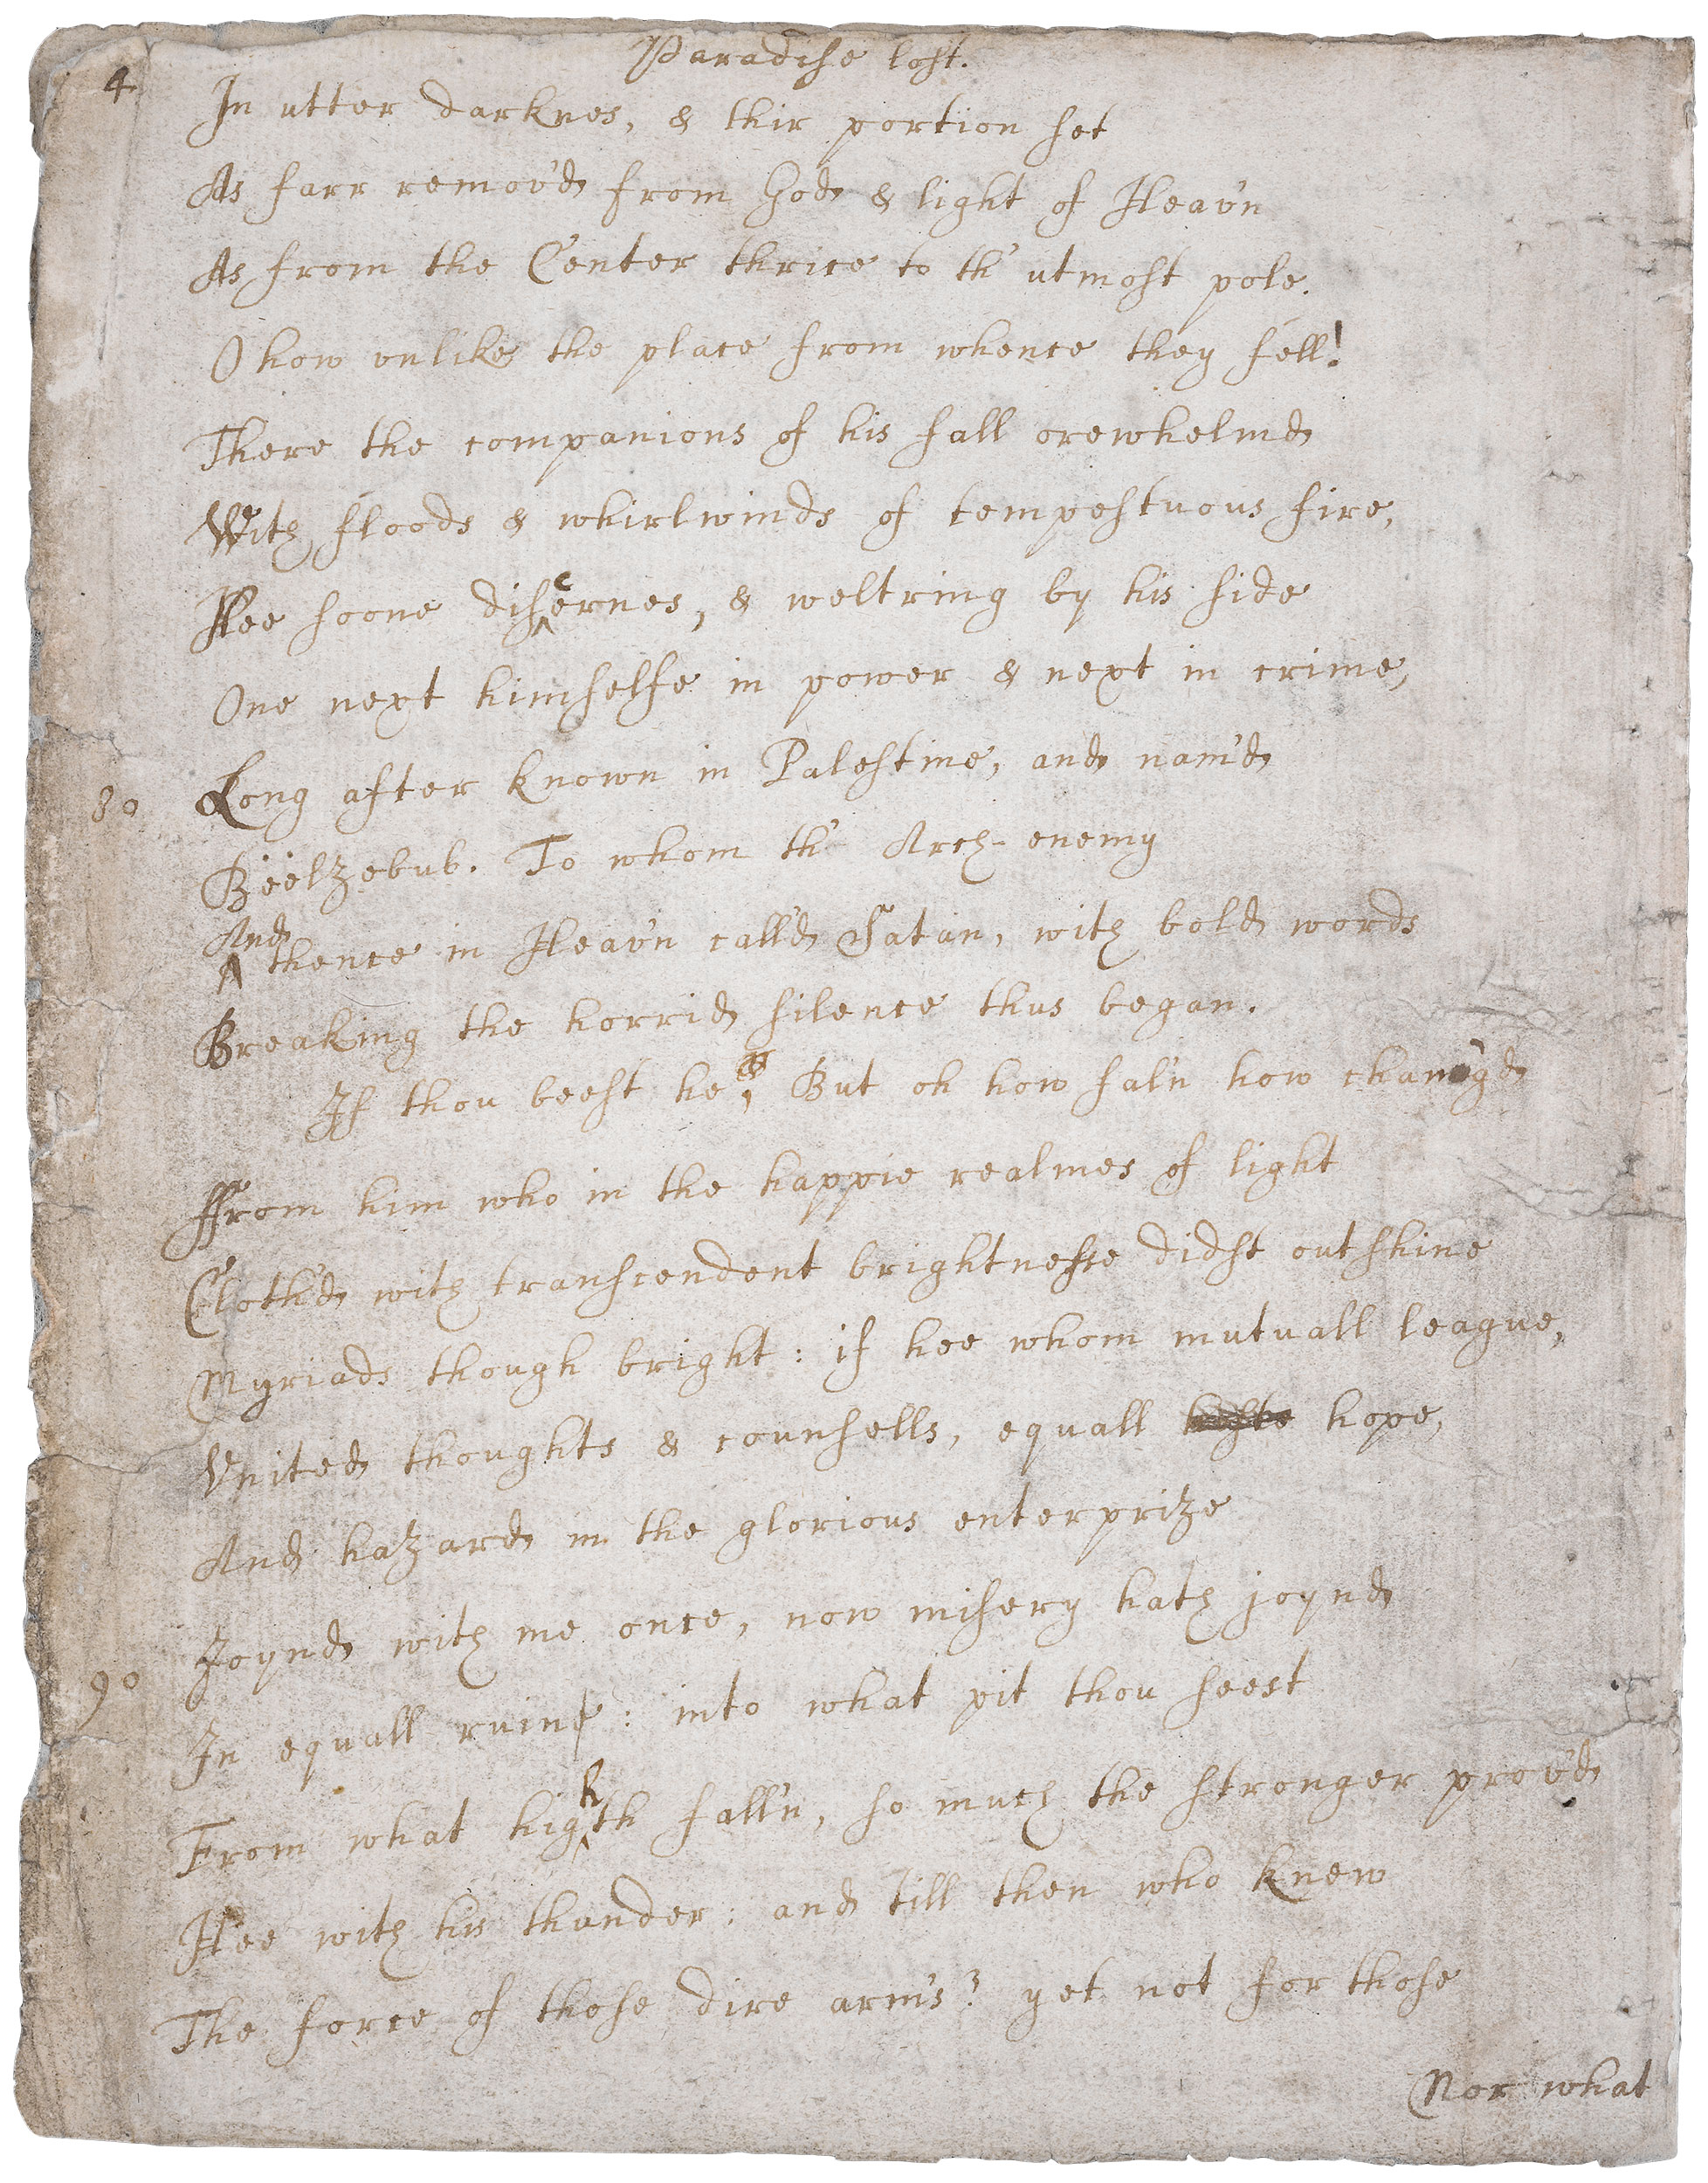 Paradise lost.
4
In utter darknes, & thir portion set
As farr remov'd from God & light of Heav'n
As from the Center thrice to th' utmost pole.
O how unlike the place from whence they fell!
There the companions of his fall orewhelmd
With floods & whirlwinds of tempestuous fire,
Hee soone discernes, & weltring by his side
One next himselfe in power & next in crime,
80 Long after known in Palestine, and nam'd
Bëëlzebub. To whom th' Arch-enemy
And thence in Heav'n call'd Satan, with bold words
Breaking the horrid silence thus began.
If thou beest he, But oh how fal'n how chang'd
From him who in the happie realmes of light
Cloth'd with transcendent brightnesse didst outshine
Myriads though bright: if hee whom mutuall league,
Vnited thoughts & counsells, equall hope,
And hazard in the glorious enterprize
Joynd with me once, now misery hath joynd
90 In equall ruin: into what pit thou seest
From what highth fall'n, so much the stronger prov'd
Hee with his thunder: and till then who knew
The force of those dire arm's? yet not for those
Nor what